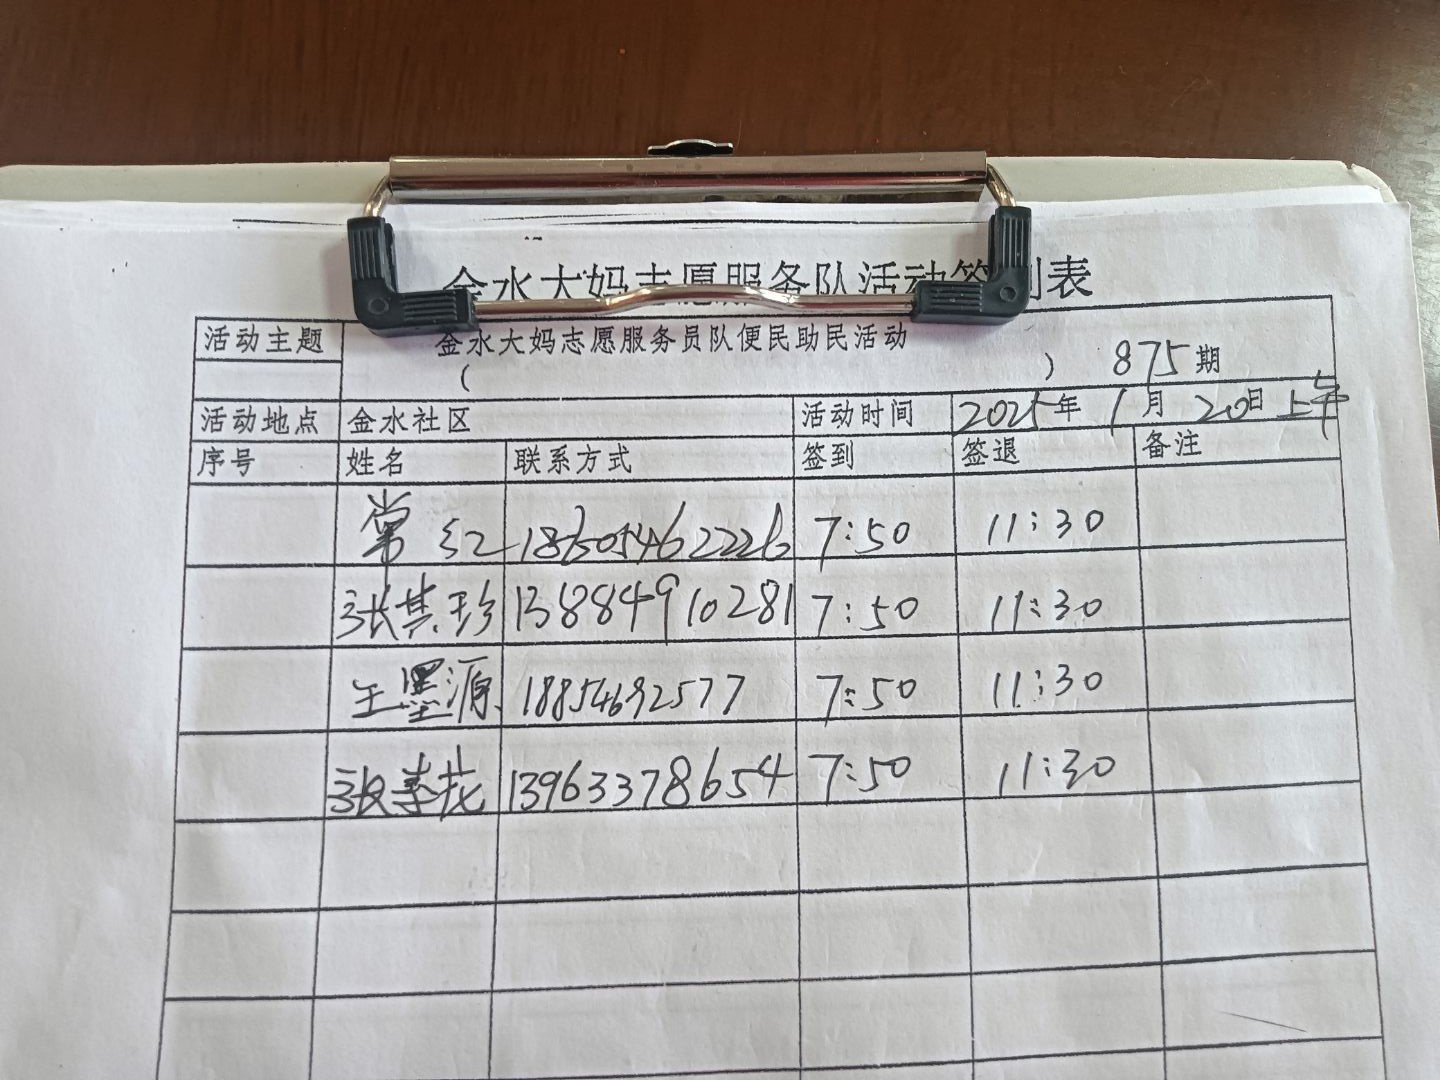 金水大妈志愿服务队活动签到表
活动主题 金水大妈志愿服务员队便民助民活动
( ) 875期
活动地点 金水社区 活动时间 2025年1月20日上午
序号 姓名 联系方式 签到 签退 备注
常红 18605462226 7:50 11:30
张其珍 13884910281 7:50 11:30
王墨源 18854692577 7:50 11:30
张 13963378654 7:50 11:30